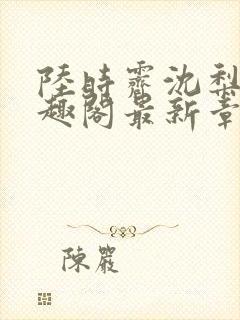 陸時霽沈梨
趣閣最新章
陳嚴